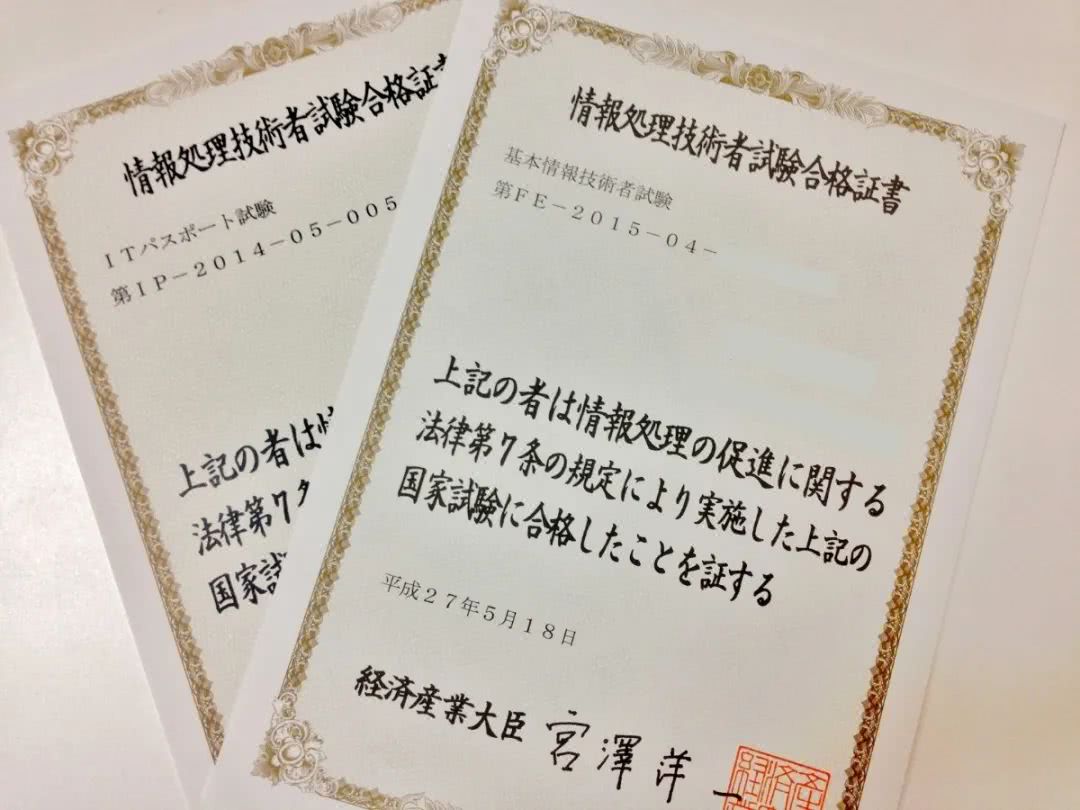 情報処理技術者試験合格証
ITパスポート試験
第IP－2014－05－005
上記の者は
法律第7
国家試
情報処理技術者試験合格証書
基本情報技術者試験
第FE－2015－04－
上記の者は情報処理の促進に関する
法律第7条の規定により実施した上記の
国家試験に合格したことを証する
平成27年5月18日
経済産業大臣 宮澤洋一
経済産